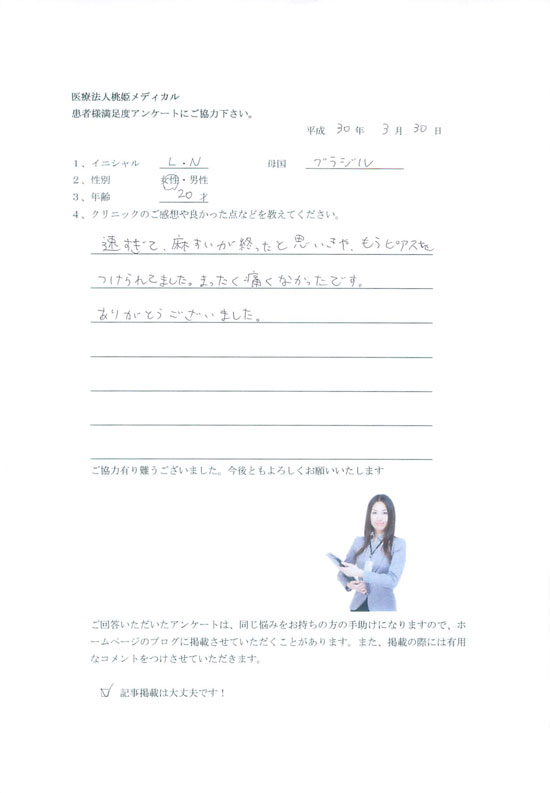 医療法人桃姫メディカル
患者様満足度アンケートにご協力下さい。
平成 30 年 3 月 30 日
1、イニシャル L・N 母国 ブラジル
2、性別 女性・男性
3、年齢 20 才
4、クリニックのご感想や良かった点などを教えてください。
遠すぎて、麻すいが終ったと思いきや、もうピアスを
つけられてました。まったく痛くなかったです。
ありがとうございました。
ご協力有り難うございました。今後ともよろしくお願いいたします
ご回答いただいたアンケートは、同じ悩みをお持ちの方の手助けになりますので、ホ
ームページのブログに掲載させていただくことがあります。また、掲載の際には有用
なコメントをつけさせていただきます。
記事掲載は大丈夫です！